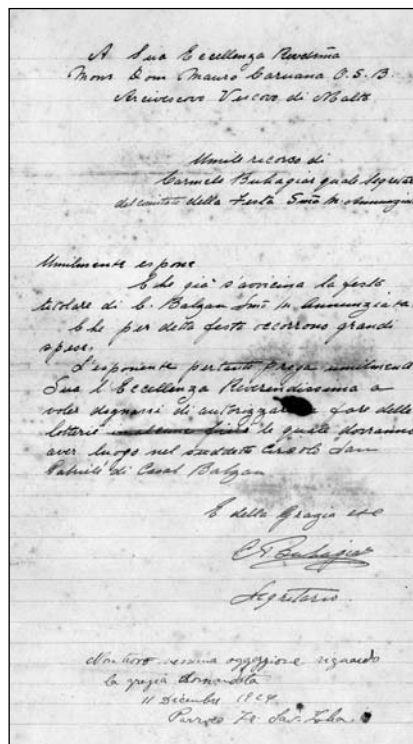 A Sua Eccellenza Revdma
Mons Dom Mauro Caruana O.S.B.
Arcivescovo Vescovo di Malta
Umile ricorso di
Carmelo Buhagiar quale Segretario
del comitato della Festa Sma M. Annunziata
Umilmente espone
Che già s'avvicina la festa
titolare di C. Balzan Sma M. Annunziata
Che per detta festa occorrono grandi
spese.
L'esponente pertanto prega umilmente
Sua Eccellenza Reverendissima a
voler degnarsi di autorizzare a fare delle
lotterie le quali dovranno
aver luogo nel suddetto Circolo San
di Casal Balzan
E della Grazia ecc
C Buhagiar
Segretario.
Non trovo nessuna oggezione riguardo
la grazia domandata
11 Dicembre 1924.